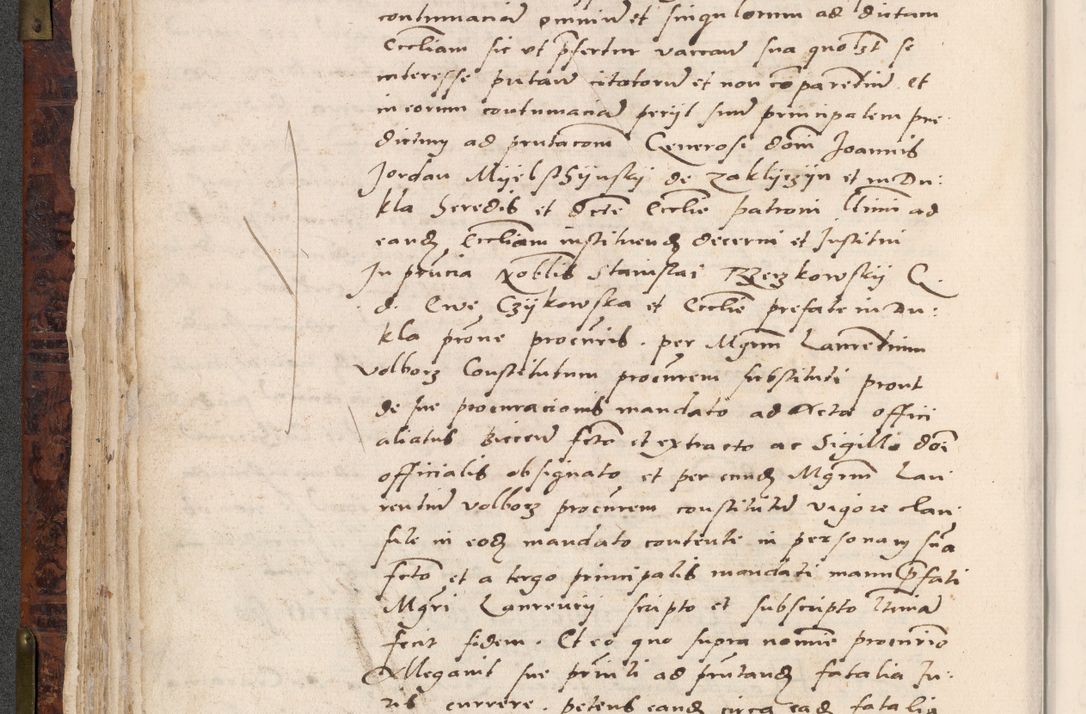 contumaciam omnium et singulorum ad dictam
Eccliam sic ut pfertur vacan sua quolt se
interesse putan citatorum et non comparentium et
in eorum contumaciam petijt sum principalem pre
dictum ad pntacom Generosi doni Joannis
Jordan Myelschynsky de Zaklyczyn et in Du
kla heredis et dcte Ecclie patroni ltimi ad
eand Eccliam instituend decerni et Institui
In pntia Nobilis Stanislai Rzeczkowsky G.
d. Ewe Czykowska et Ecclie prefate in Du:
kla prone procuris. per Mgrum Laurentium
Volborz Constitutum procurem substituti prout
de sue procuracionis mandato ad Acta offici
aliatus Biecen fcto et extracto ac Sigillo doi
officialis obsignato et per eund Mgrum Lau
rentium Volborz procurem constitutum vigore clau
sule in eod mandato contente in personam sua
fcto et a tergo principalis mandati manu pfati
Mgri Laurencij scripto et subscripto ltimam
fecit fidem. Et eo quo supra nomine procurio
Allegavit sue prnti ad pntand fatalia Ju:
ris currere. petens eand circa ead fatalia